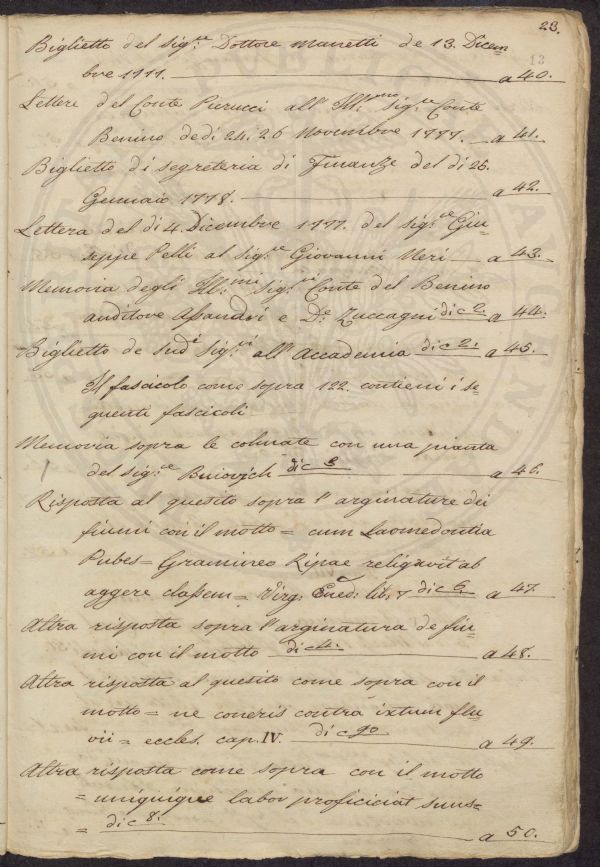 23.
13
Biglietto del sig.re Dottore Manetti de 13. Dicem-
bre 1777. a 40.
Lettere del Conte Pierucci all' Ill.mo sig.re Conte
Benino de di 24. 26 Novembre 1777. a 41.
Biglietto di segreteria di Finanze del di 26.
Gennaio 1778. a 42.
Lettera del di 4. Dicembre 1777. del sig.re Giu-
seppe Pelli al sig.re Giovanni Neri a 43.
Memoria degli Ill.mi Sig.ri Conte del Benino
auditore e D.e Zuccagni di c 2. a 44.
Biglietto de sud.i sig.ri all' Accademia di c 2. a 45.
Il fascicolo come sopra 122. contieni i se-
guenti fascicoli
Memoria sopra le colmate con una pianta
del sig.re di c 3 a 46.
Risposta al quesito sopra l'arginature dei
fiumi con il motto = cum Laomedontia
Pubes = Gramineo Ripae religavit ab
aggere classem = Virg: Ened: lib: 7 di c 6. a 47.
Altra risposta sopra l'arginatura de fiu-
mi con il motto di c 4. a 48.
Altra risposta al quesito come sopra con il
motto = ne coneris contra ixtum flu-
vii = eccles. cap. IV. di c 90 a 49.
Altra risposta come sopra con il motto
= uniquique labor proficiciat suus =
= di c 8. a 50.